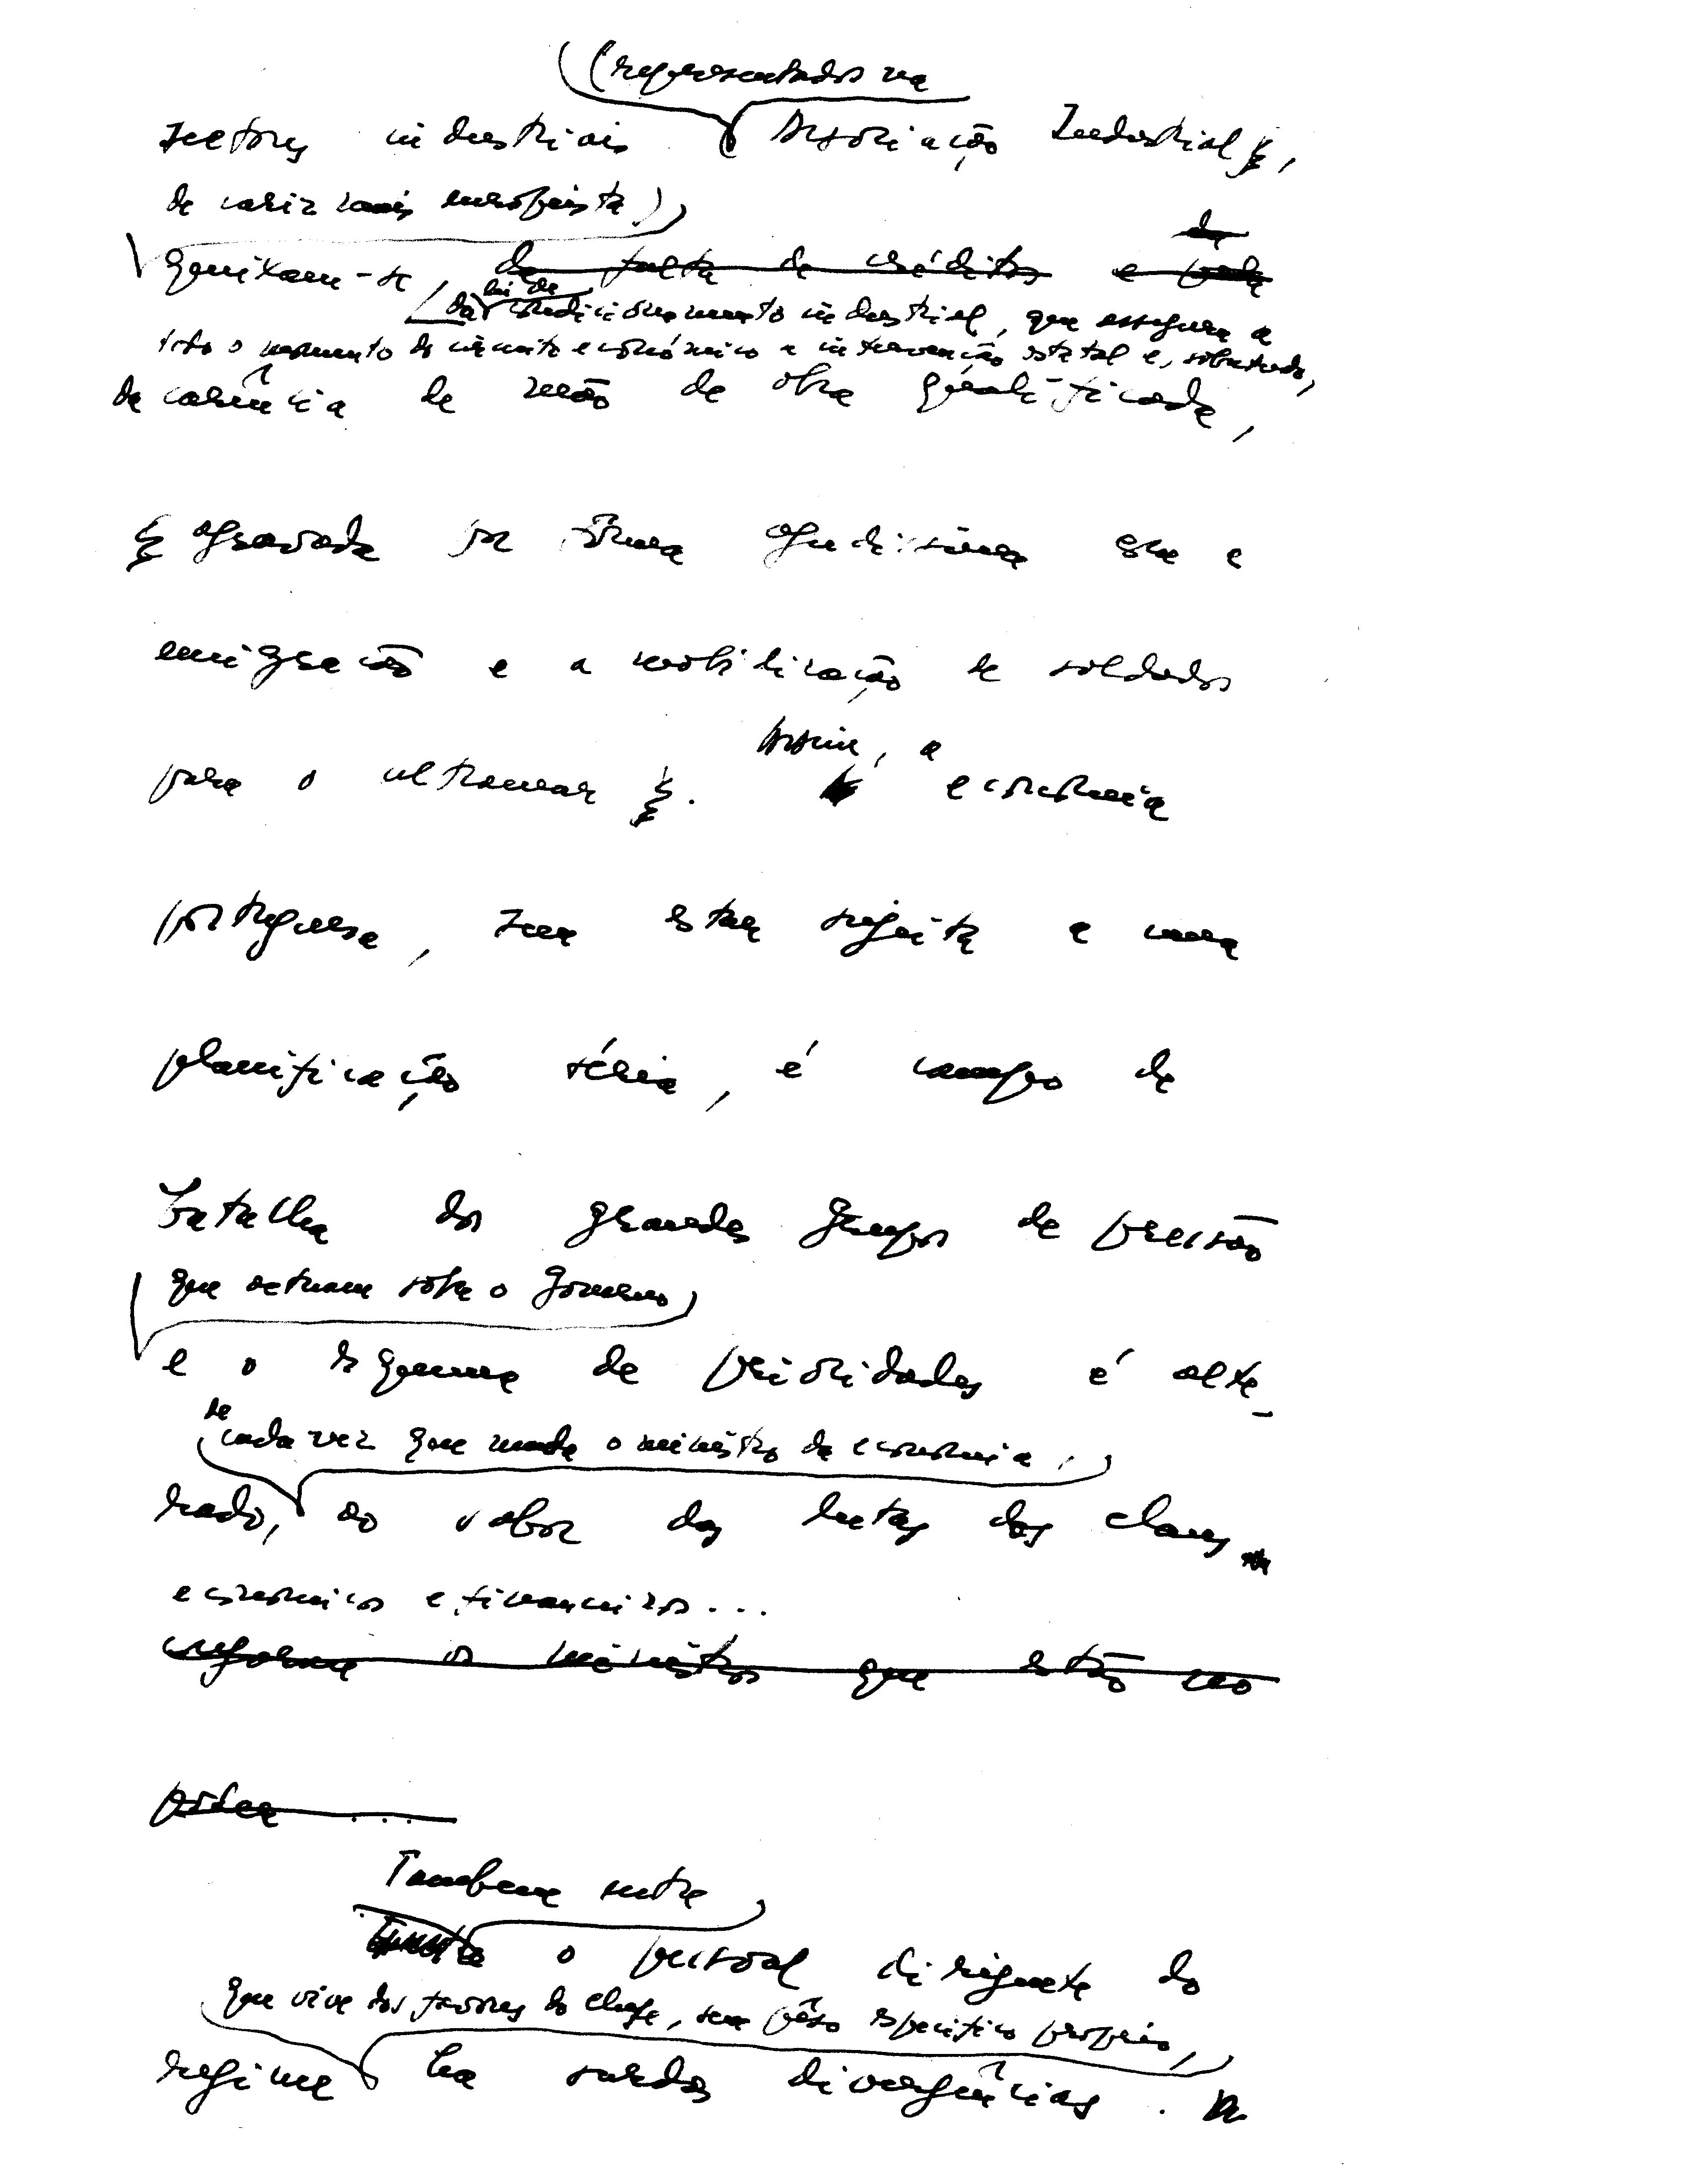 (representados na
sectores industriais Associação Industrial,
de cariz mais europeista)
queixam-se, de falta de créditos e pela da
da lei de condicionamento industrial, que assegura a
todo o momento do circuito económico a intervenção estatal e, sobretudo,
da carência de mão de obra qualificada,
agravada por forma agudissima com a
emigração e a mobilização de soldados
para o ultramar. Assim, a economia
portuguesa, sem estar sujeita a uma
planificação séria, é campo de
batalha dos grandes grupos de pressão
que actuam sobre o Governo
e o esquema de prioridades é alte-
se cada vez que muda o ministro da economia,
rado, ao sabor das lutas dos clans
economicos e financeiros...
os ministros que estão no
poder ...
Tambem entre
o pessoal dirigente do
que vive dos favores do chefe, sem pêso especifico proprio,
regime ha surdas divergências.